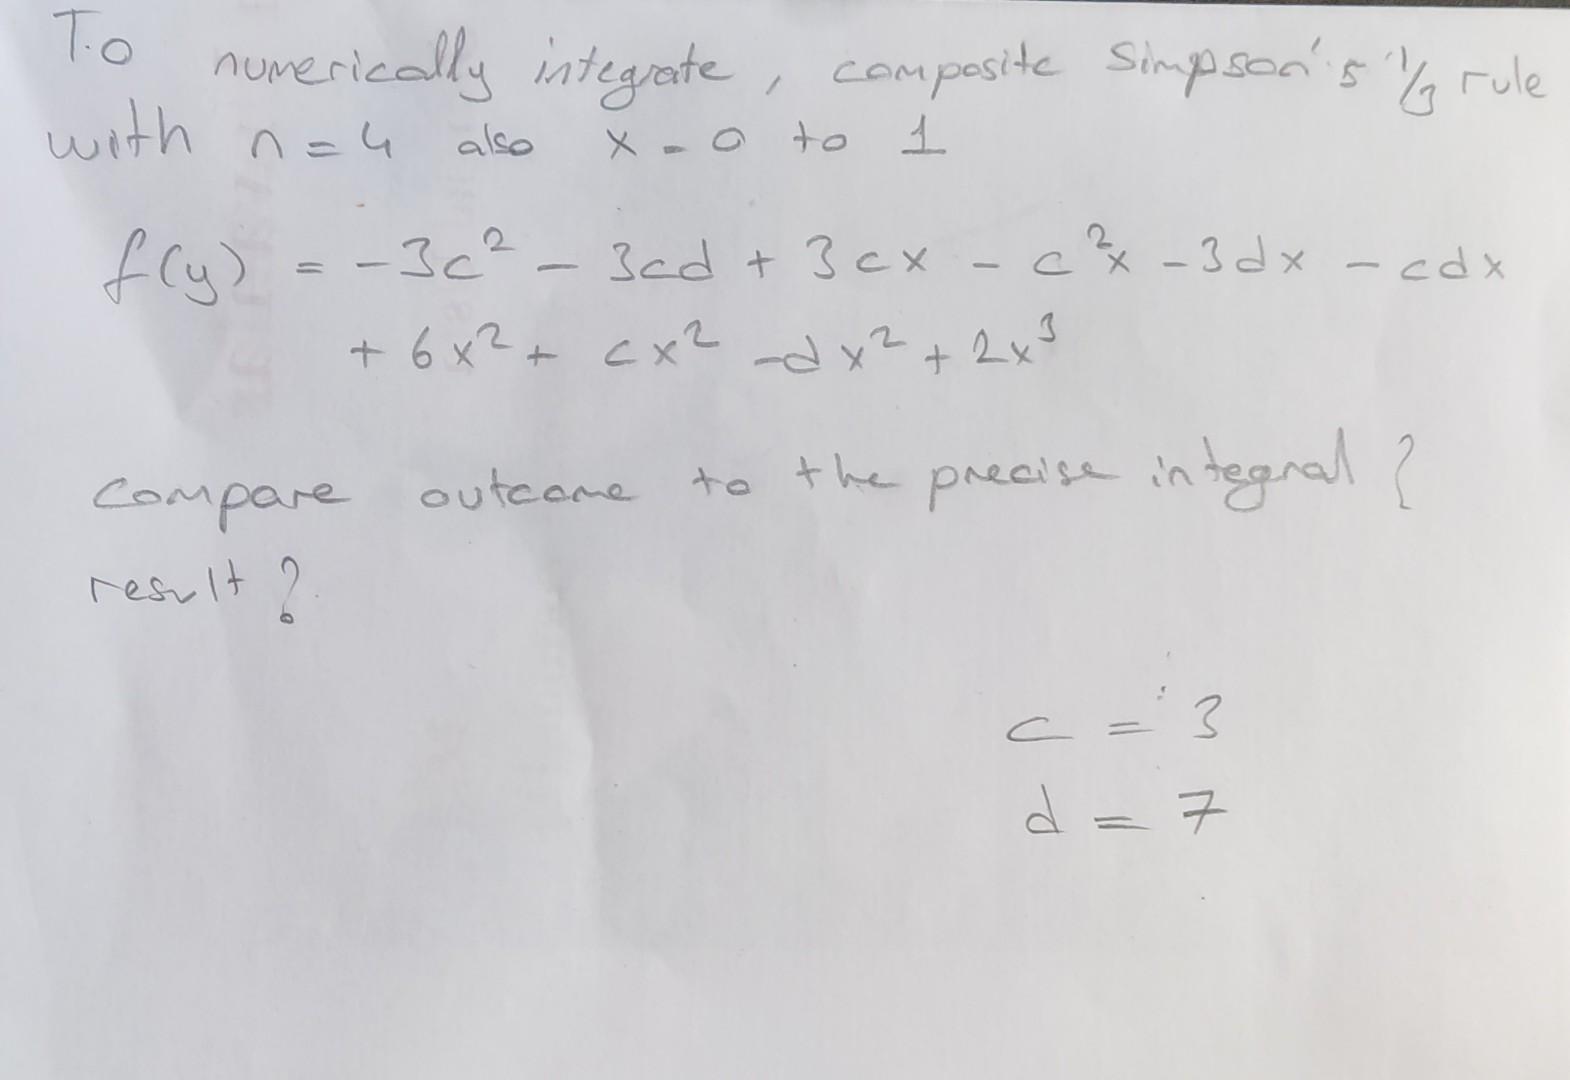 To numerically integrate, composite Simpson's 1/3 rule
with n = 4 also x = 0 to 1
f(y) = -3c² - 3cd + 3cx - c²x - 3dx - cdx
+ 6x² + cx² - dx² + 2x³
compare outcome to the precise integral ?
result ?
c = 3
d = 7